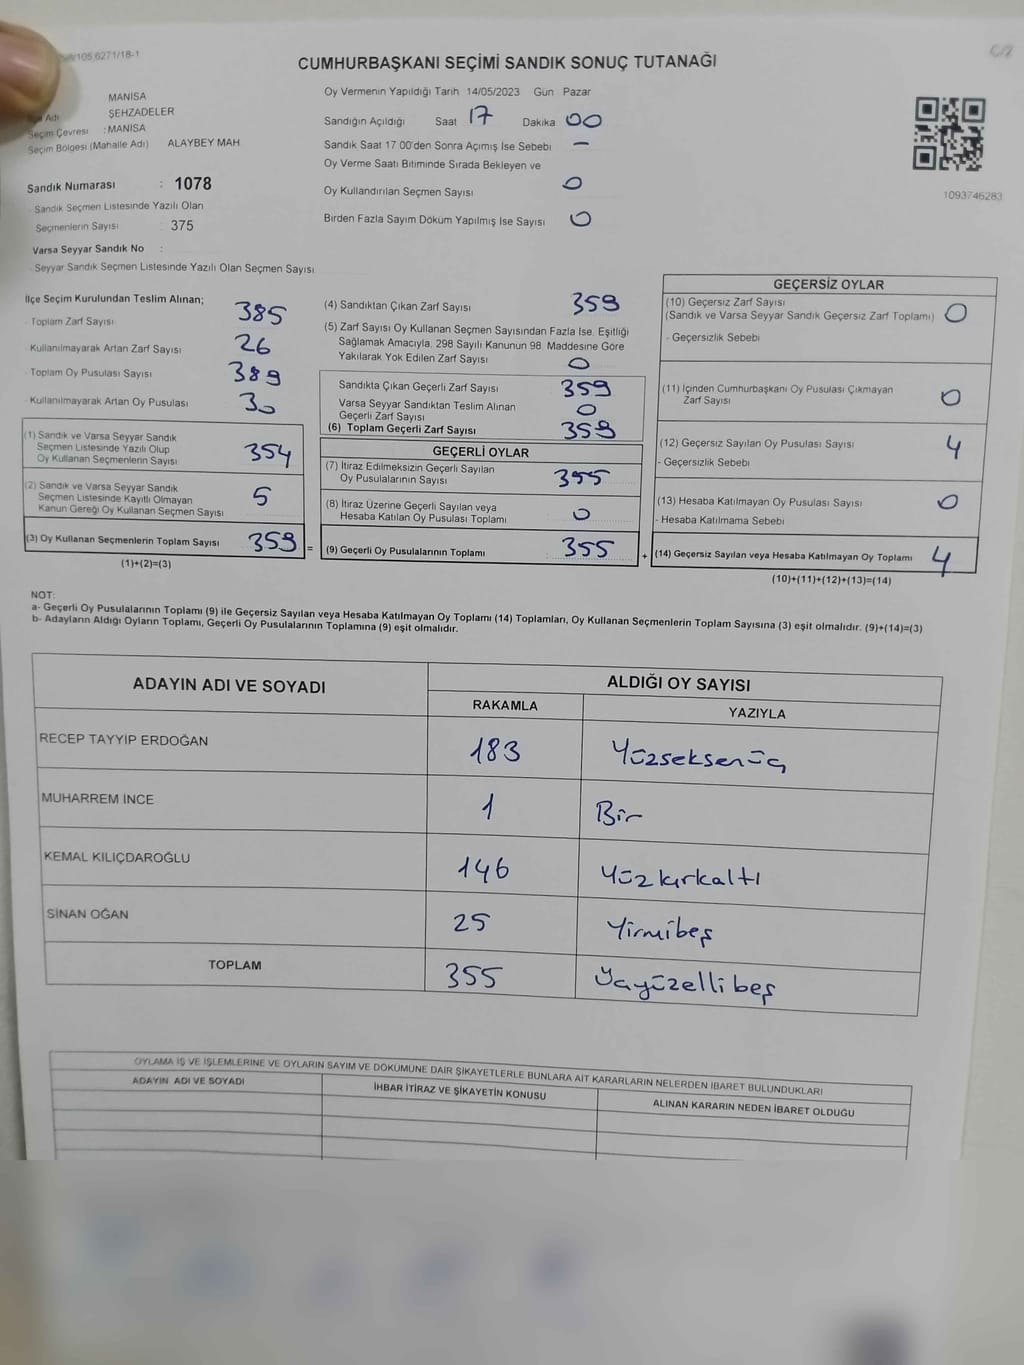 C/2
CUMHURBAŞKANI SEÇİMİ SANDIK SONUÇ TUTANAĞI
MANİSA
ŞEHZADELER
Seçim Çevresi : MANİSA
Seçim Bölgesi (Mahalle Adı) ALAYBEY MAH
Sandık Numarası : 1078
Sandık Seçmen Listesinde Yazılı Olan
Seçmenlerin Sayısı 375
Varsa Seyyar Sandık No :
Seyyar Sandık Seçmen Listesinde Yazılı Olan Seçmen Sayısı
Oy Vermenin Yapıldığı Tarih 14/05/2023 Gün Pazar
Sandığın Açıldığı Saat 17 Dakika 00
Sandık Saat 17.00'den Sonra Açımış İse Sebebi -
Oy Verme Saati Bitiminde Sırada Bekleyen ve
Oy Kullandırılan Seçmen Sayısı 0
Birden Fazla Sayım Döküm Yapılmış İse Sayısı 0
1093746283
İlçe Seçim Kurulundan Teslim Alınan;
- Toplam Zarf Sayısı 385
- Kullanılmayarak Artan Zarf Sayısı 26
- Toplam Oy Pusulası Sayısı 389
- Kullanılmayarak Artan Oy Pusulası 30
(1) Sandık ve Varsa Seyyar Sandık
Seçmen Listesinde Yazılı Olup
Oy Kullanan Seçmenlerin Sayısı 354
(2) Sandık ve Varsa Seyyar Sandık
Seçmen Listesinde Kayıtlı Olmayan
Kanun Gereği Oy Kullanan Seçmen Sayısı 5
(3) Oy Kullanan Seçmenlerin Toplam Sayısı 359 =
(1)+(2)=(3)
(4) Sandıktan Çıkan Zarf Sayısı 359
(5) Zarf Sayısı Oy Kullanan Seçmen Sayısından Fazla İse, Eşitliği
Sağlamak Amacıyla, 298 Sayılı Kanunun 98. Maddesine Göre
Yakılarak Yok Edilen Zarf Sayısı 0
Sandıkta Çıkan Geçerli Zarf Sayısı 359
Varsa Seyyar Sandıktan Teslim Alınan
Geçerli Zarf Sayısı 0
(6) Toplam Geçerli Zarf Sayısı 359
GEÇERLİ OYLAR
(7) İtiraz Edilmeksizin Geçerli Sayılan
Oy Pusulalarının Sayısı 355
(8) İtiraz Üzerine Geçerli Sayılan veya
Hesaba Katılan Oy Pusulası Toplamı 0
(9) Geçerli Oy Pusulalarının Toplamı 355 +
GEÇERSİZ OYLAR
(10) Geçersiz Zarf Sayısı
(Sandık ve Varsa Seyyar Sandık Geçersiz Zarf Toplamı) 0
- Geçersizlik Sebebi
(11) İçinden Cumhurbaşkanı Oy Pusulası Çıkmayan
Zarf Sayısı 0
(12) Geçersiz Sayılan Oy Pusulası Sayısı 4
- Geçersizlik Sebebi
(13) Hesaba Katılmayan Oy Pusulası Sayısı 0
- Hesaba Katılmama Sebebi
(14) Geçersiz Sayılan veya Hesaba Katılmayan Oy Toplamı 4
(10)+(11)+(12)+(13)=(14)
NOT:
a- Geçerli Oy Pusulalarının Toplamı (9) ile Geçersiz Sayılan veya Hesaba Katılmayan Oy Toplamı (14) Toplamları, Oy Kullanan Seçmenlerin Toplam Sayısına (3) eşit olmalıdır. (9)+(14)=(3)
b- Adayların Aldığı Oyların Toplamı, Geçerli Oy Pusulalarının Toplamına (9) eşit olmalıdır.
ADAYIN ADI VE SOYADI
ALDIĞI OY SAYISI
RAKAMLA YAZIYLA
RECEP TAYYİP ERDOĞAN 183 Yüzseksenüç
MUHARREM İNCE 1 Bir
KEMAL KILIÇDAROĞLU 146 Yüzkırkaltı
SİNAN OĞAN 25 Yirmibeş
TOPLAM 355 Üçyüzellibeş
OYLAMA İŞ VE İŞLEMLERİNE VE OYLARIN SAYIM VE DÖKÜMÜNE DAİR ŞİKAYETLERLE BUNLARA AİT KARARLARIN NELERDEN İBARET BULUNDUKLARI
ADAYIN ADI VE SOYADI İHBAR İTİRAZ VE ŞİKAYETİN KONUSU ALINAN KARARIN NEDEN İBARET OLDUĞU